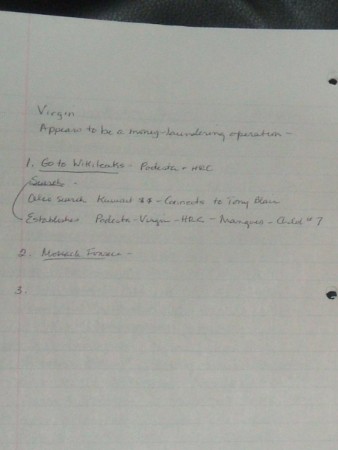 Virgin
Appears to be a money-laundering operation -
1. Go to Wikileaks - Podesta + HRC
Search -
Also search Kuwait $$ - Connects to Tony Blair
Establishes Podesta - Virgin - HRC - Marquis - Child # 7
2. Mossack Fonseca -
3.